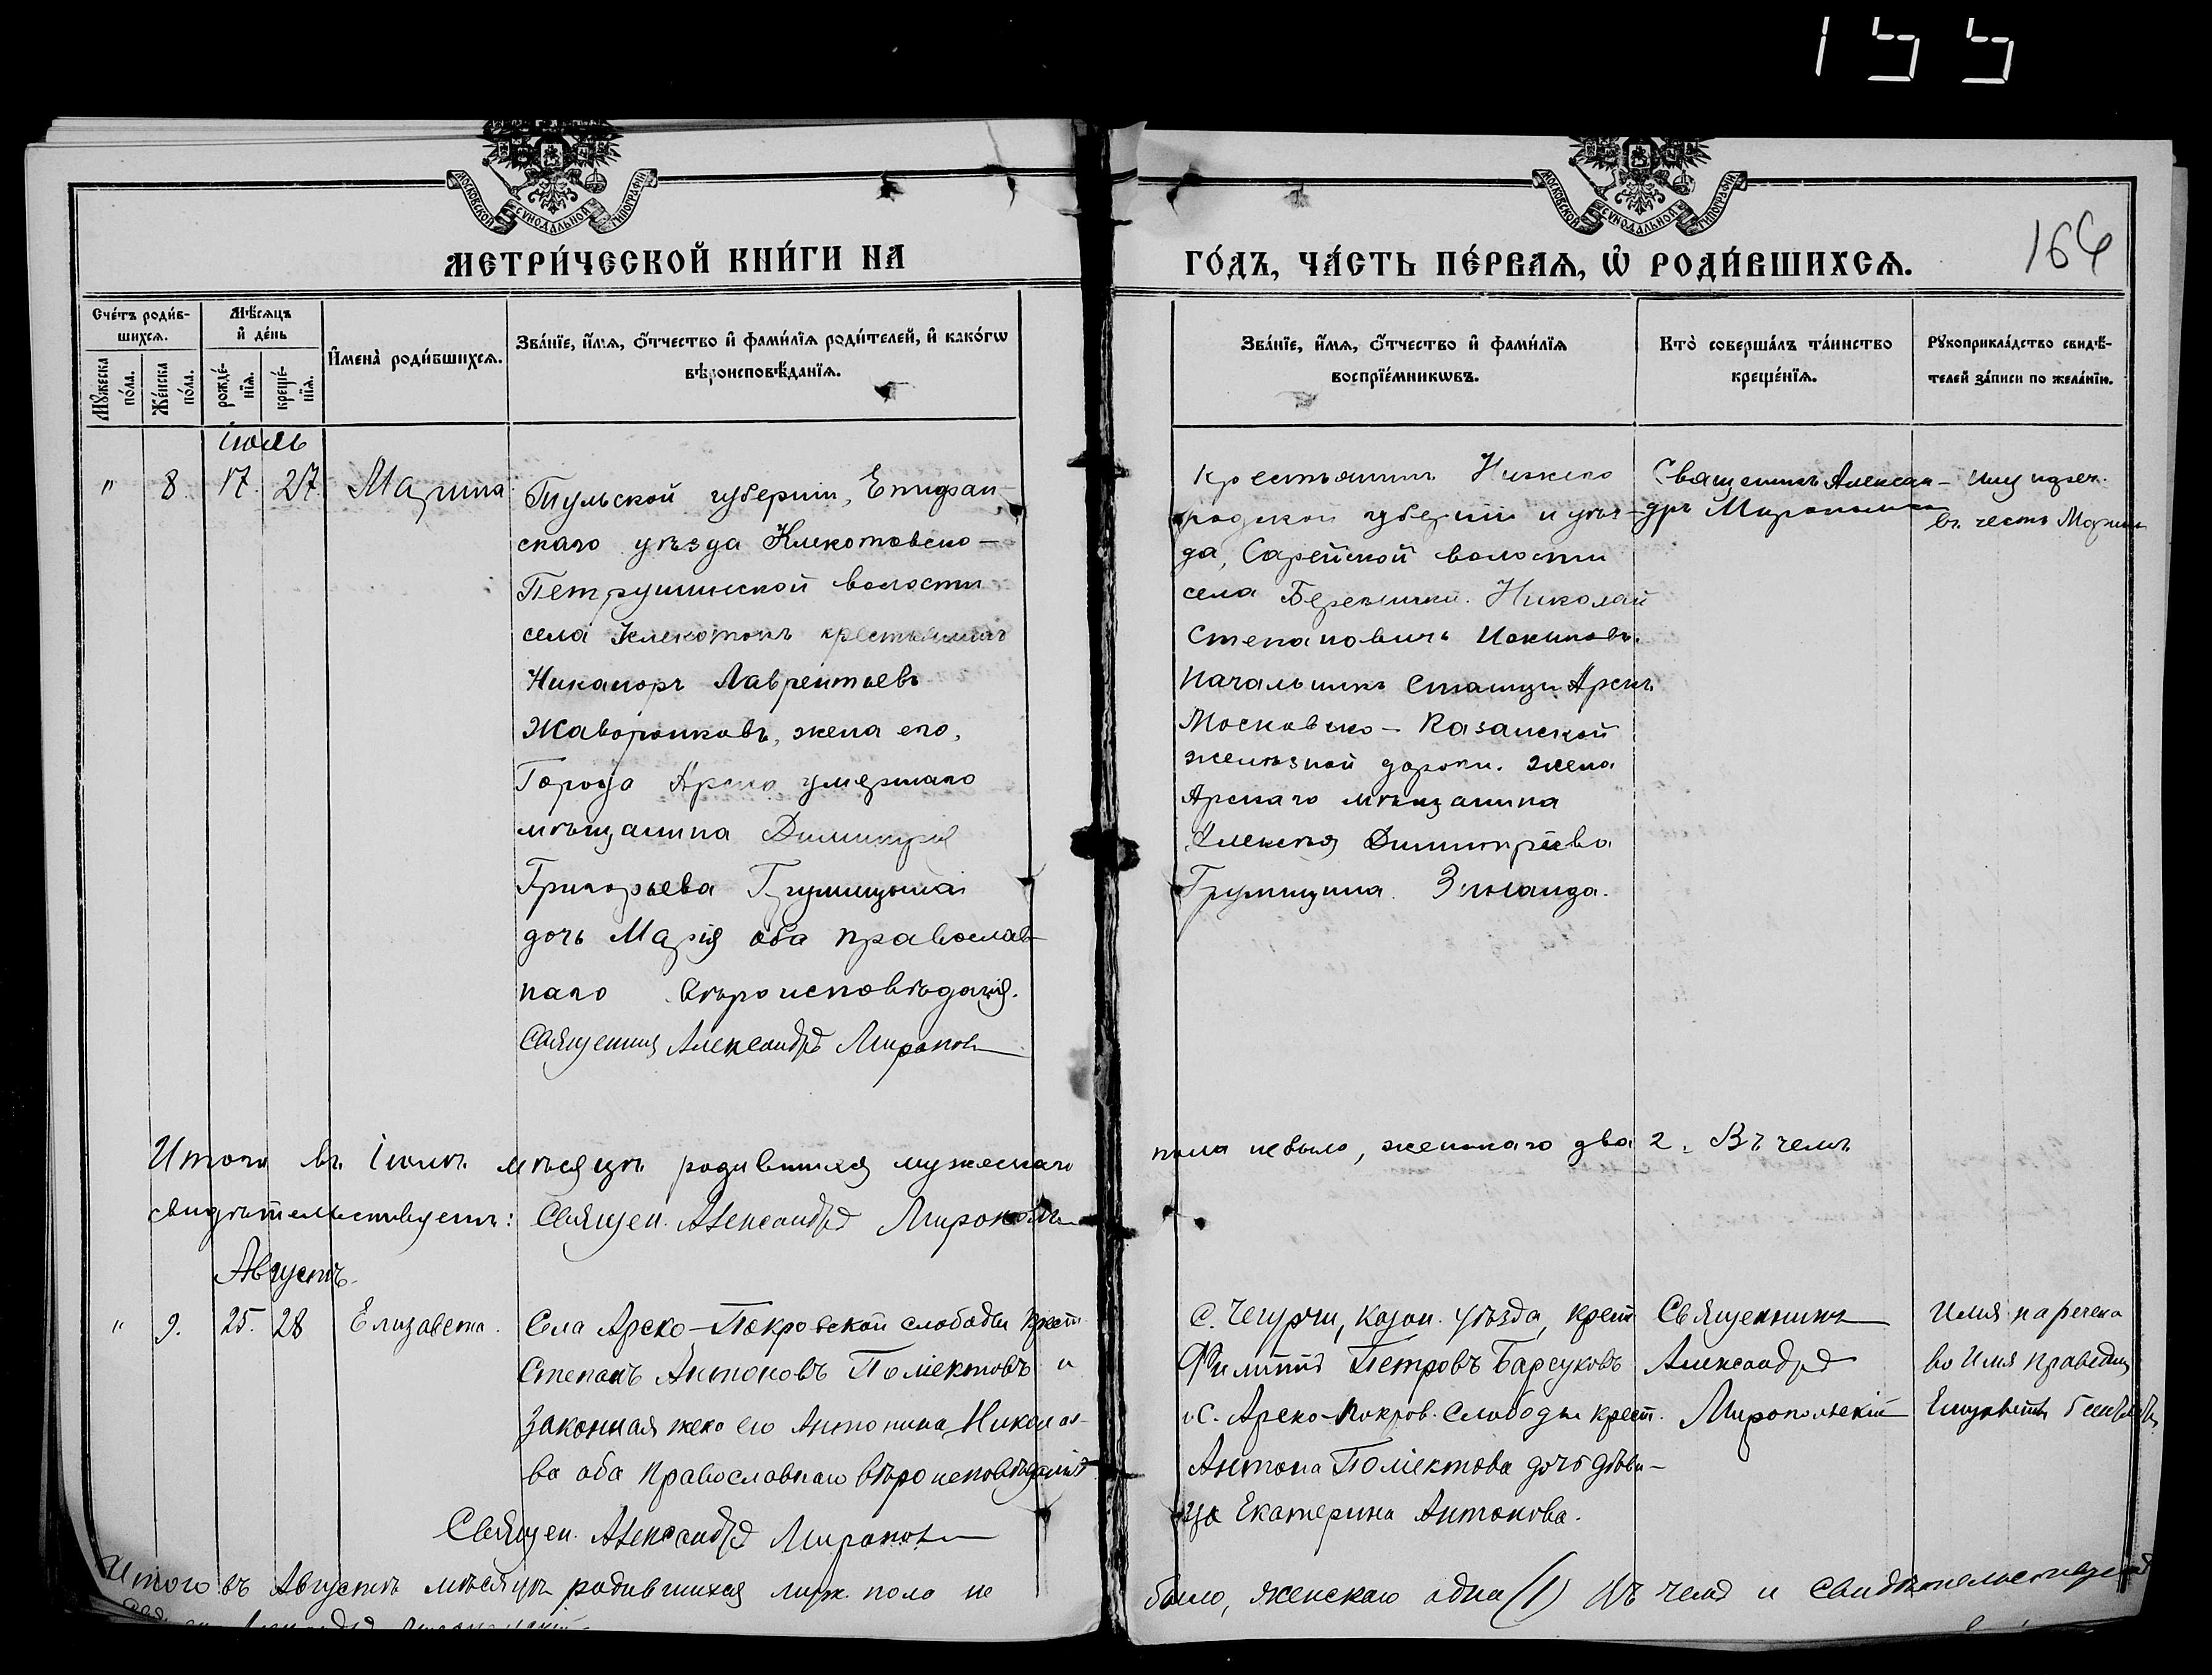 155
МОСКОВСКОЙ СУНОДАЛЬНОЙ ТИПОГРАФІИ
МОСКОВСКОЙ СУНОДАЛЬНОЙ ТИПОГРАФІИ
МЕТРИ́ЧЕСКОЙ КНИ́ГИ НА
ГО́ДЪ, ЧА́СТЬ ПЕ́РВАѦ, Ѡ҆ РОДИ́ВШИХСѦ.
164
Сче́тъ роди́в-
шихсѧ.
Мꙋ́жеска по́ла.
Же́нска по́ла.
Мѣ́сѧцъ и҆ де́нь
рожде́-нїѧ.
креще́-нїѧ.
И҆мена̀ роди́вшихсѧ.
Зва́нїе, и҆́мѧ, ѻ҆́тчество и҆ фами́лїѧ роди́телей, и҆ како́гѡ
вѣроисповѣ́данїѧ.
Зва́нїе, и҆́мѧ, ѻ҆́тчество и҆ фами́лїѧ
воспрїе́мникѡвъ.
Кто̀ соверша́лъ та́инство
креще́нїѧ.
Рꙋкоприкла́дство свидѣ́-
телей за́писи по жела́нїю.
Іюль
" 8. 17. 27. Марина.
Тульской губерніи, Епифан-
скаго уѣзда Клекотовско-
Петрушинской волости
села Клекотокъ крестьянинъ
Никаноръ Лаврентьевъ
Жаворонковъ, жена его,
Города Арска умершаго
мѣщанина Димитрія
Григорьева Грумицына
дочь Марія оба православ-
наго вѣроисповѣданія.
Священникъ Александръ Миропол
Крестьянинъ Нижего
родской губерніи и уѣз-
да, волости
села Николай
Степановичъ
Начальникъ станции Арскъ
Московско-Казанской
желѣзной дороги. Жена
Арскаго мѣщанина
Алексѣя Димитріева
Грумицына Зинаида.
Священникъ Алексан-
дръ Миропольск
Имя нареч.
въ честь Марины
Итого въ Іюлѣ мѣсяцѣ родившихся мужескаго
пола небыло, женскаго два 2. Въ чемъ
свидѣтельствуемъ: Священ. Александръ Миропол
Августъ.
" 9. 25. 28 Елизавета.
Села Арско-Покровской слободы крест.
Степанъ Антоновъ Поліектовъ и
законная жена его Антонина Никола-
ва оба Православнаго вѣроисповѣданія
Священ. Александръ Миропол
с. Чегурчи, Казан. уѣзда, крест
Филиппъ Петровъ Барсуковъ
и С. Арско-Покров. Слободы крест.
Антона Поліектова дочь дѣви-
ца Екатерина Антонова.
Священникъ
Александръ
Миропольскій
Имя наречено
во Имя Праведн
Итого въ Августѣ мѣсяцѣ родившихся муж. пола не
было, женскаго одна (1) Въ чемъ и свидѣтельствуемъ